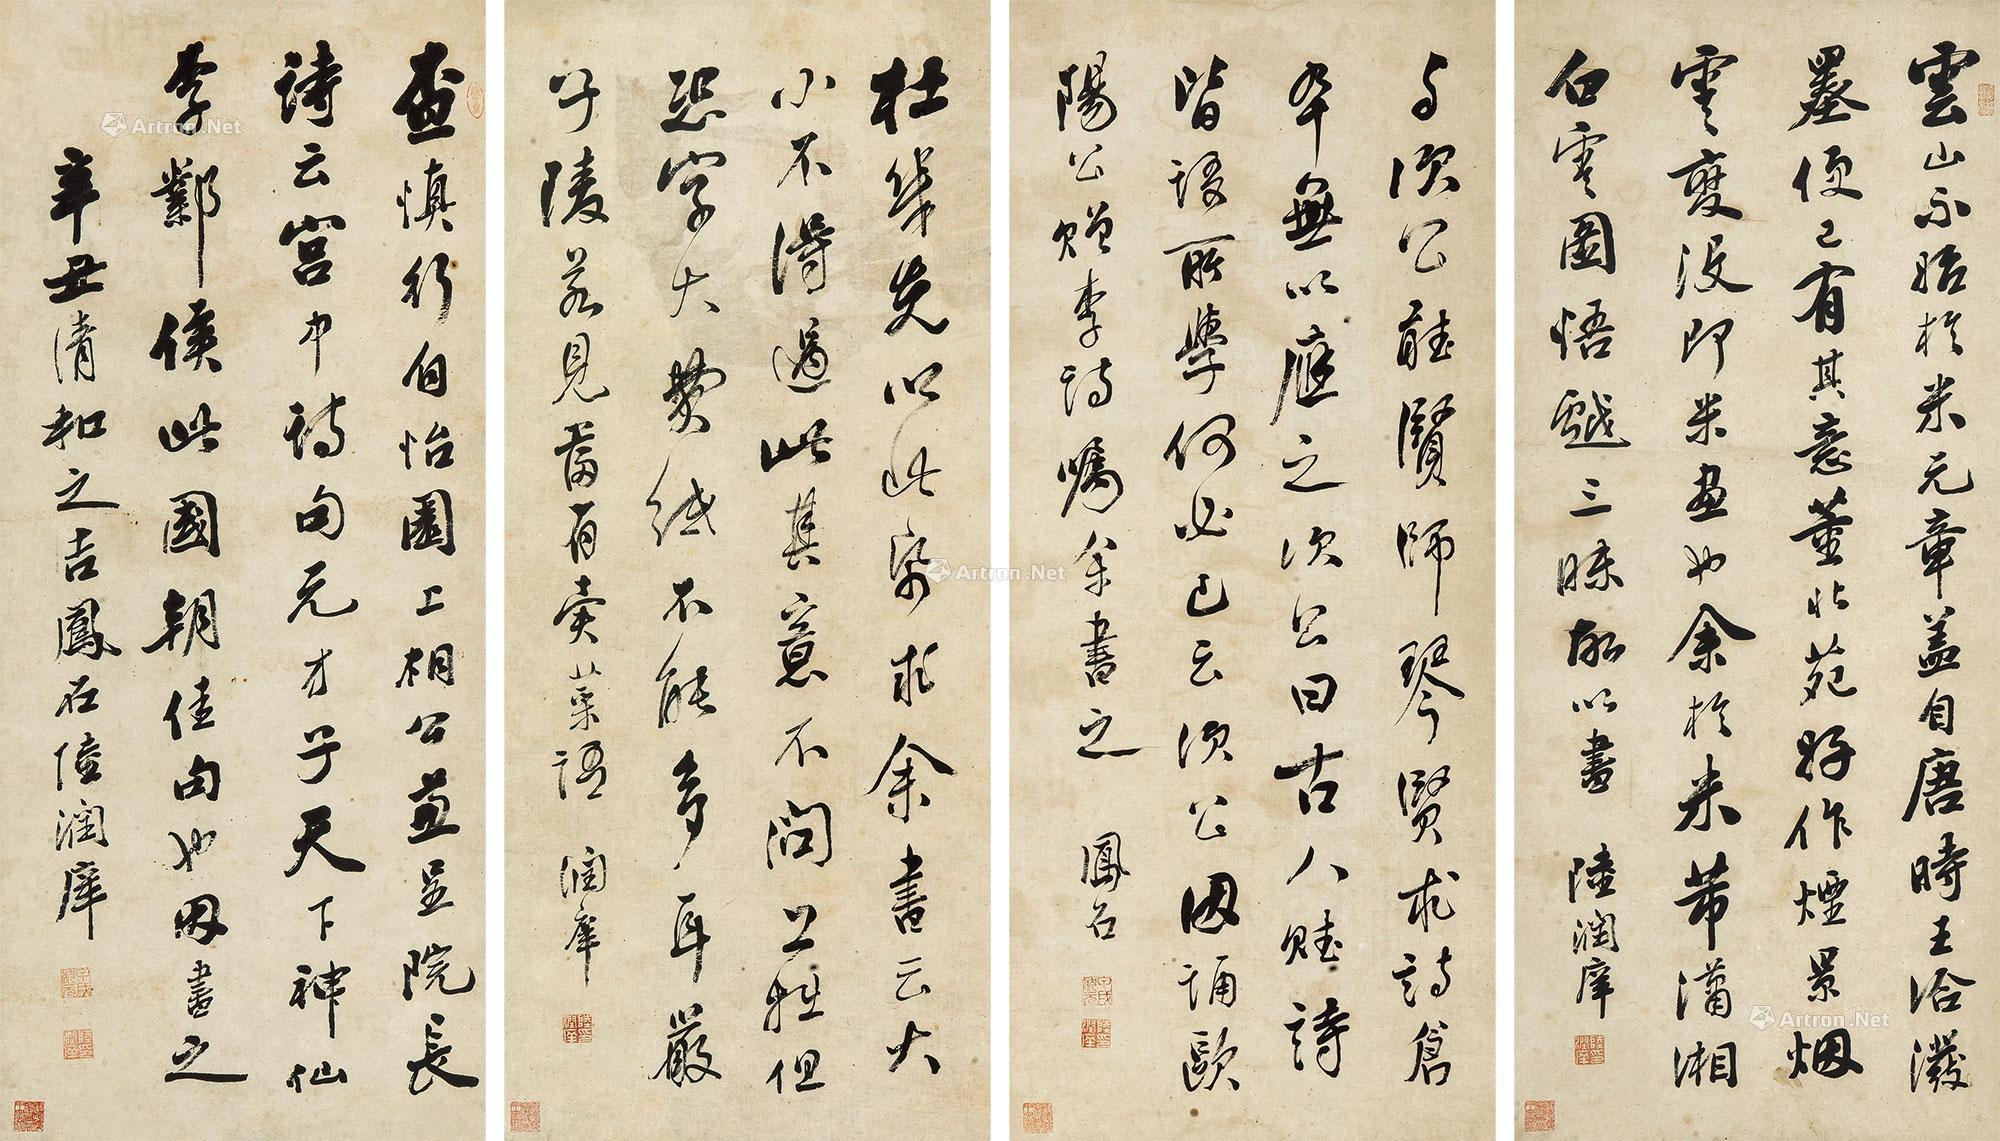 雲山不始於米元章盖自唐時王洽潑
墨便已有其意董北苑好作煙景烟
雲變沒即米畫也余於米芾瀟湘
白雲圖悟戱三昧故以書 陸潤庠
与次公聽賢師琴賢求詩倉
卒無以應之次公曰古人賦詩
皆語所學何必己云次公因誦歐
陽公贈李詩嘱余書之 鳳石
杜幾先以此紙求余書云大
小不得過此其意不問工拙但
恐字大費紙不能多耳嚴
子陵若見當有賣菜語 潤庠
查慎行自怡園上相公並呈院長
詩云宫中詩句元才子天下神仙
李鄴侯此國朝佳句也因書之
辛丑清和之吉鳳石陸潤庠
Artron.Net
Artron.Net
Artron.Net